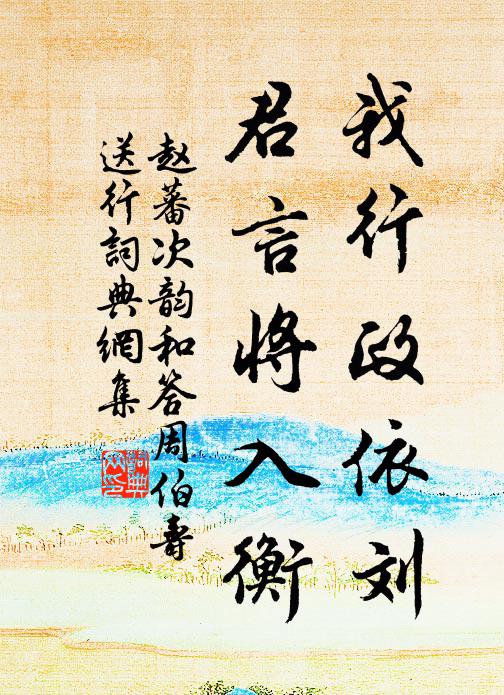 我行政依刘
君言将入衡
赵蕃次韵和答周伯寿
送行詞典網集